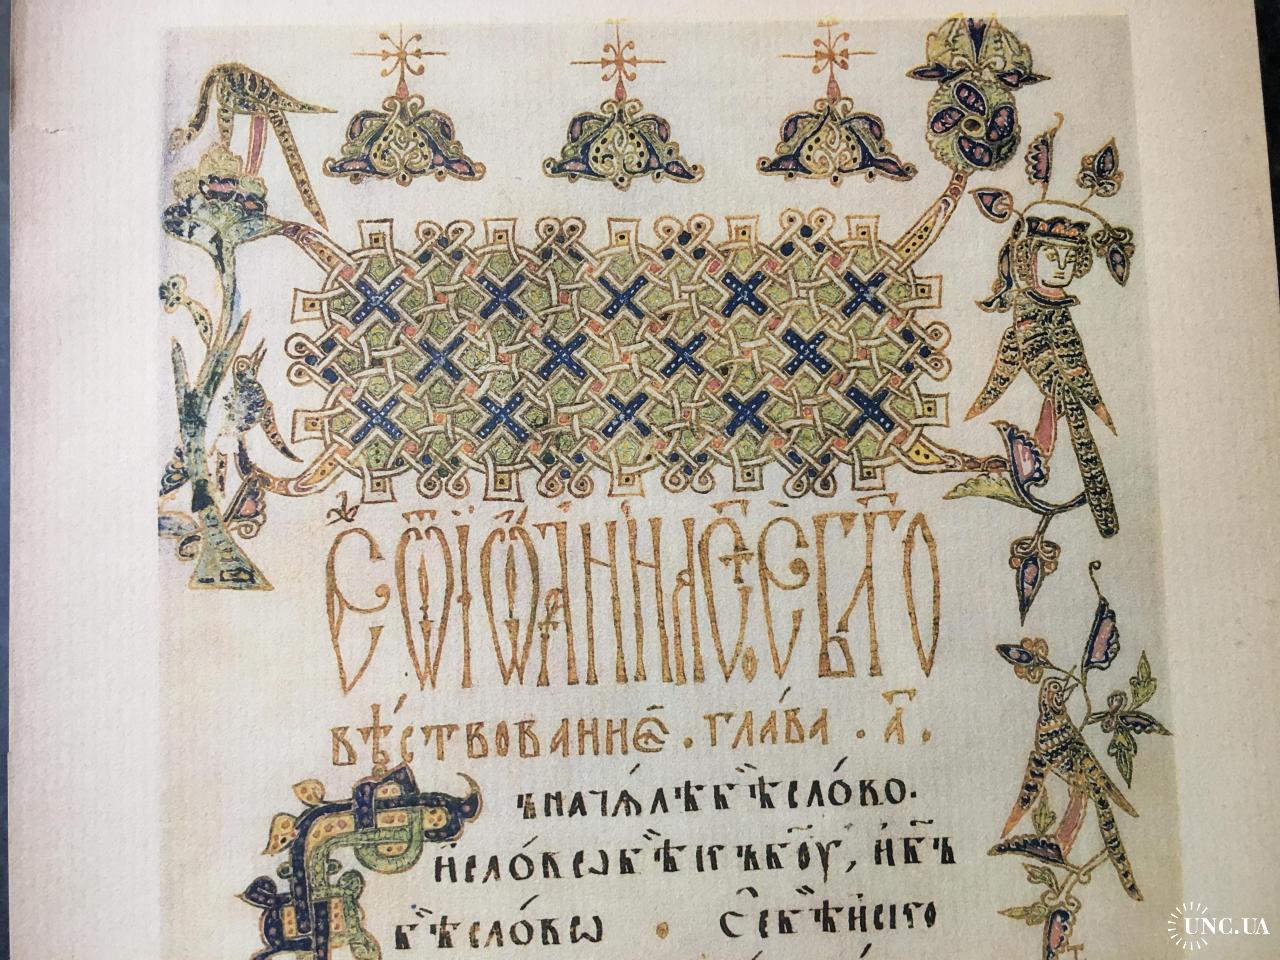 Еѿ іѡанна ст҃ое бл҃го
вѣ́ствованїе . глава̀ . а҃ .
ъ нача́лѣ бѣ̀ сло́во .
и҆ сло́во бѣ̀ къ бг҃ꙋ , и҆ бг҃ъ
бѣ̀ сло́во . Се́ бѣ̀ и҆сконо
UNC.UA